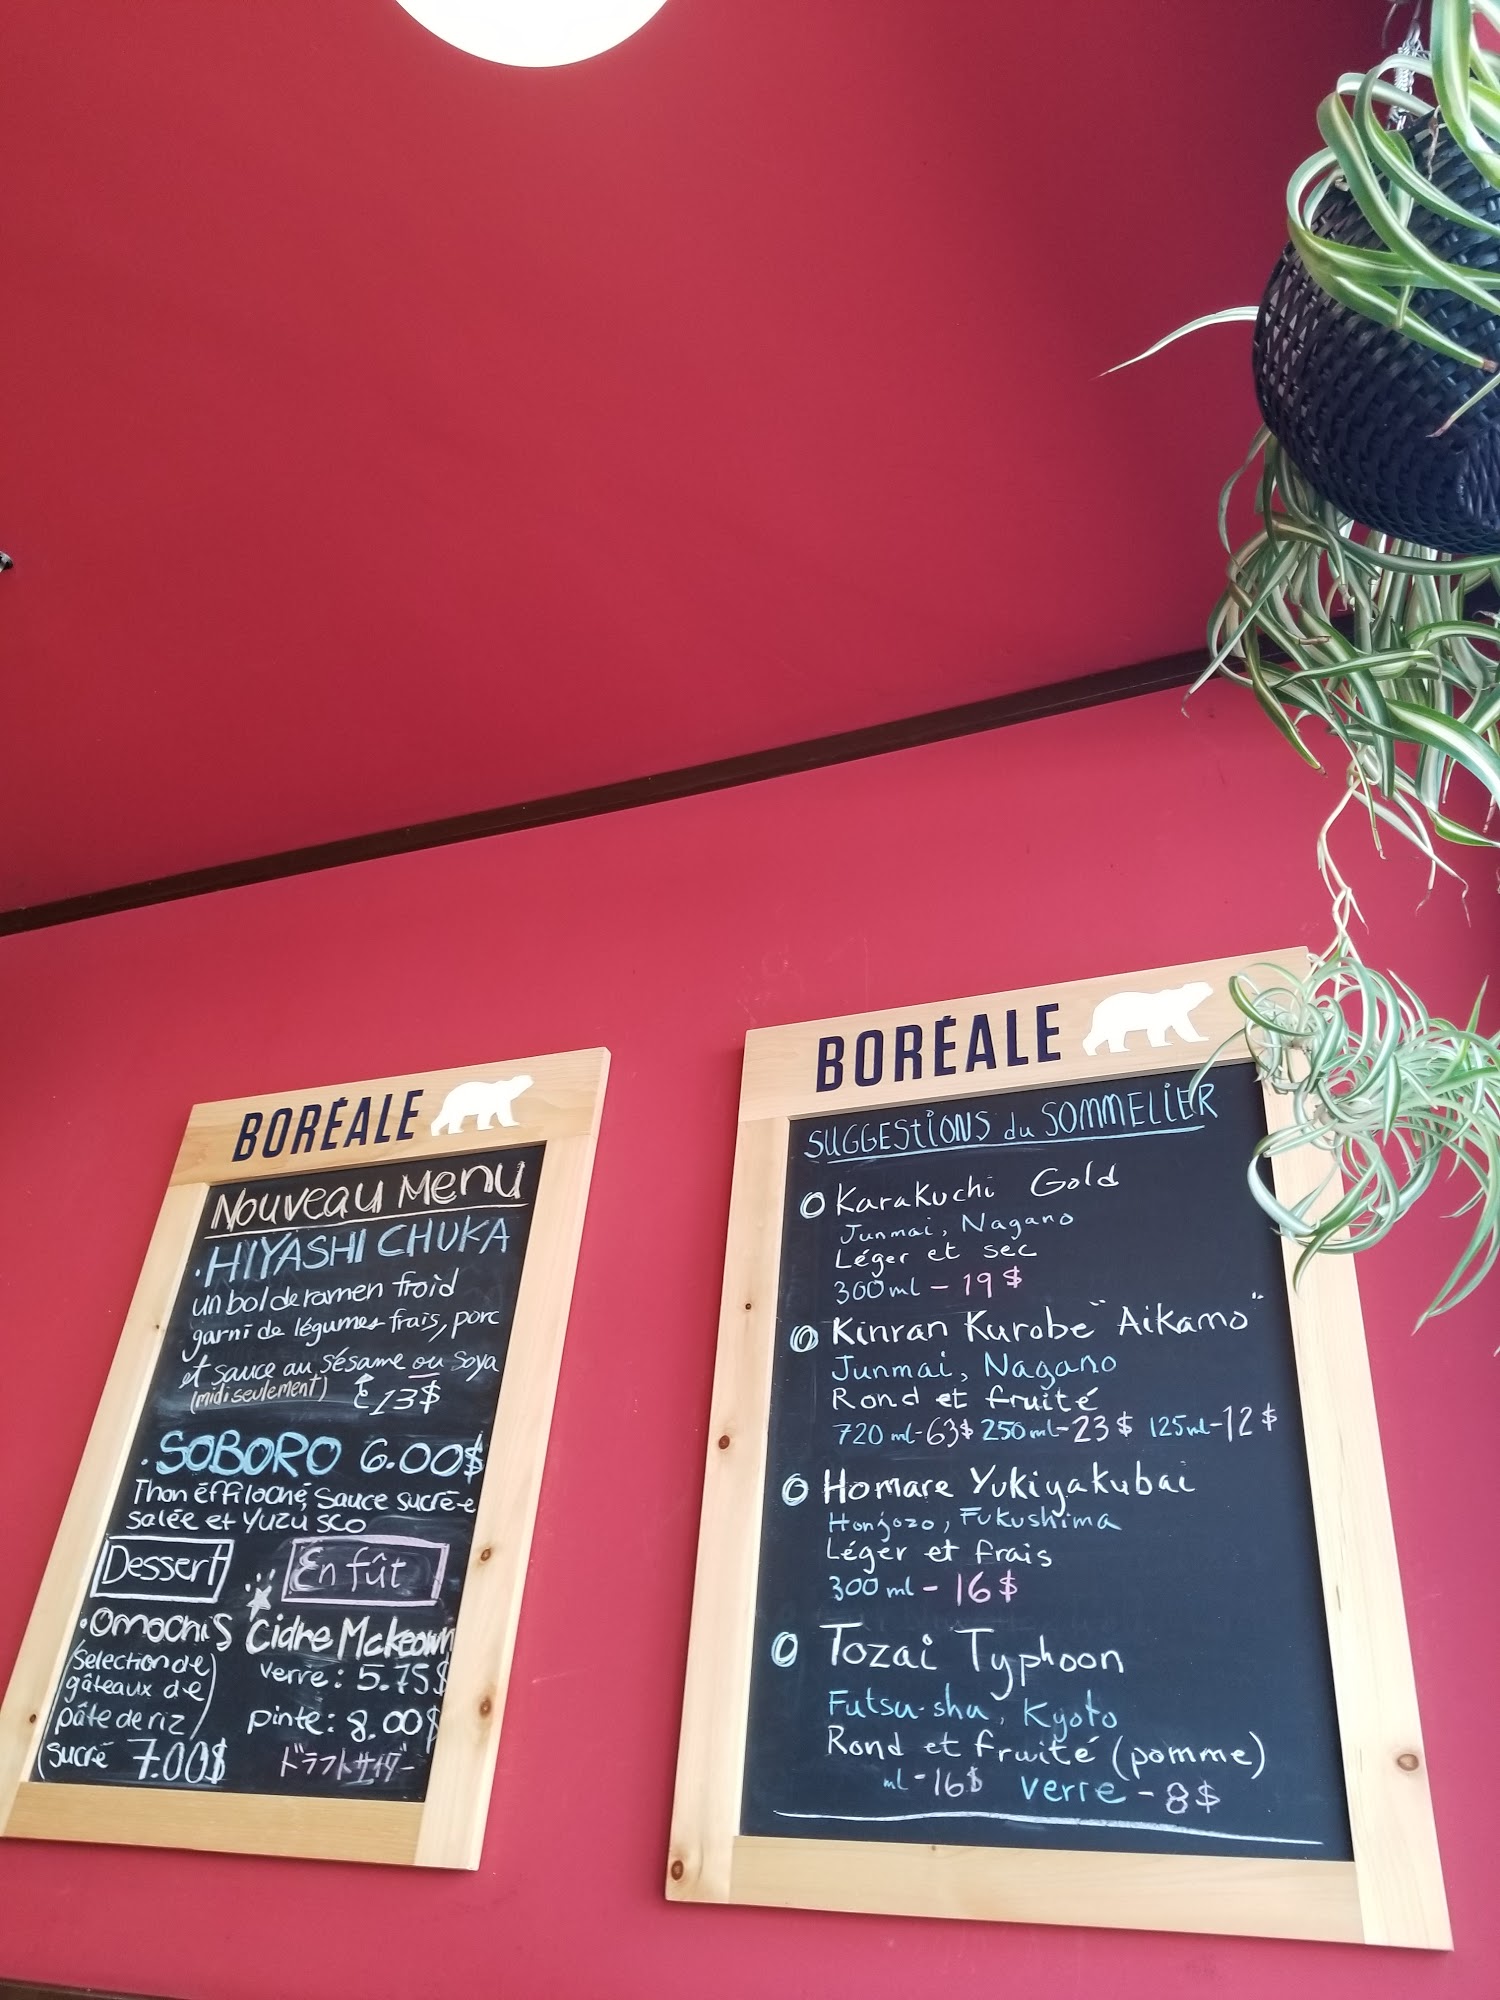 BORÉALE
Nouveau Menu
· HIYASHI CHUKA
un bol de ramen froid
garni de légumes frais, porc
et sauce au sésame ou soya
(midi seulement)
13$
· SOBORO 6.00$
Thon éffiloché, sauce sucré-e
salée et YUZU SCO
Dessert
· omochis
(selection de
gâteaux de
pâte de riz
sucré
7.00$
En fût
Cidre Mckeown
verre: 5.75$
pinte: 8.00$
ドラフトサイダー
BORÉALE
SUGGESTIONS du SOMMELIER
Karakuchi Gold
Junmai, Nagano
Léger et sec
300ml - 19$
Kinran Kurobe "Aikamo"
Junmai, Nagano
Rond et fruité
720 ml - 63$ 250ml - 23$ 125ml - 12$
Homare Yukiyakubai
Honjozo, Fukushima
Léger et frais
300 ml - 16$
Tozai Typhoon
Futsu-shu, Kyoto
Rond et fruité (pomme)
ml - 16$ verre - 8$